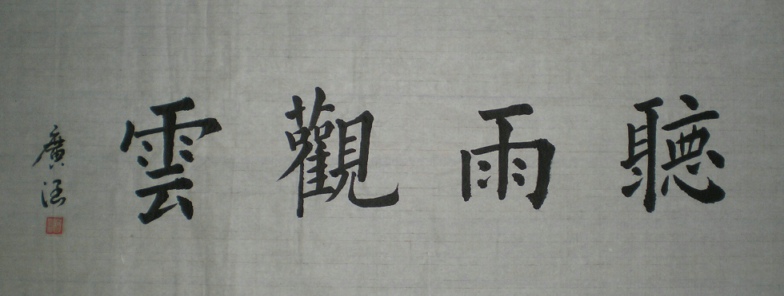 聽雨觀雲
廣涵